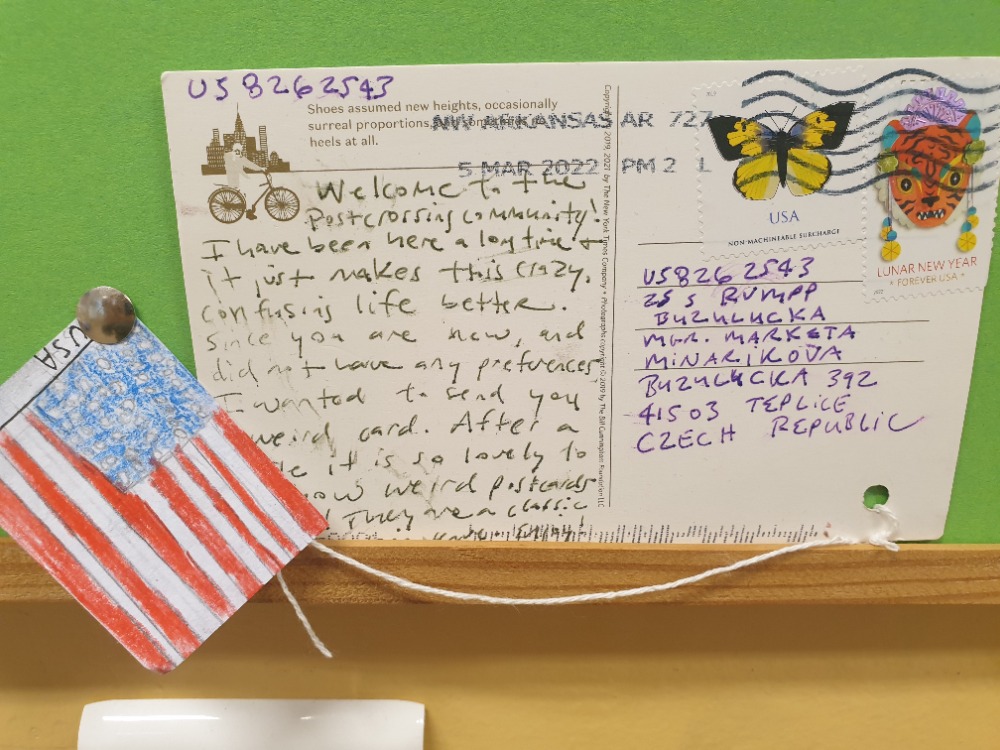 US8262543
Shoes assumed new heights, occasionally
surreal proportions,
heels at all.
NW ARKANSAS AR 727
5 MAR 2022 PM 2 L
Welcome to the
Postcrossing community!
I have been here a long time +
it just makes this crazy,
confusing life better.
Since you are new, and
did not have any preferences
I wanted to send you
weird card. After a
it is so lovely to
weird postcards
They are a classic
Copyright © 2019, 2021 by The New York Times Company • Photographs copyright © 2019 by The Bill Cunningham Foundation LLC
USA
NON-MACHINEABLE SURCHARGE
LUNAR NEW YEAR
• FOREVER USA •
US8262543
ZŠ S RUMPP
BUZULUCKA
MGR. MARKETA
MINARIKOVA
BUZULUCKA 392
41503 TEPLICE
CZECH REPUBLIC
USA